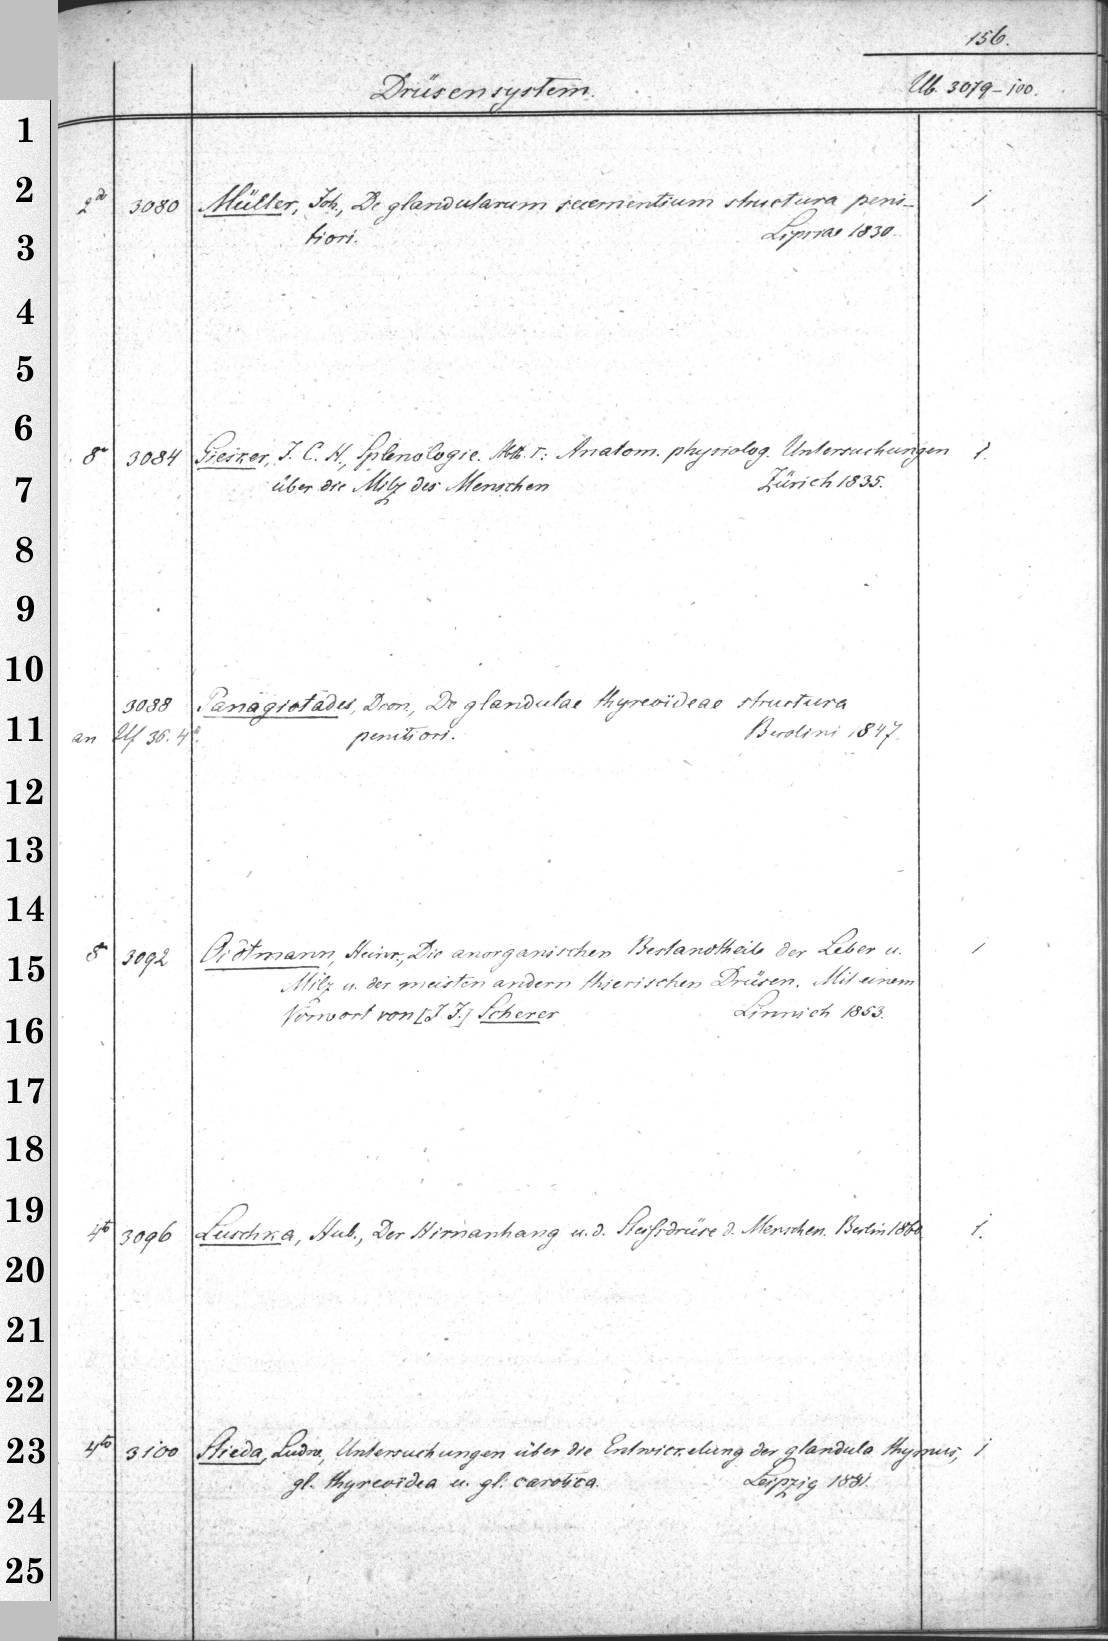 156.
Drüsensystem. Ub. 3079–100.
1
2
2º 3080 Müller, Joh., De glandularum secernentium structura peni- 1
3
tiori. Lipsiae 1830.
4
5
6
8º 3084 Giesker, J. C. H., Splenologie. Abth. I: Anatom. physiolog. Untersuchungen 1.
7
über die Milz des Menschen Zürich 1835.
8
9
10
3088 Panagiotades, Dion., De glandulae thyreoideae structura
11
an Uf 36. 4º. penitiori. Berolini 1847.
12
13
14
8º 3092 Oidtmann, Heinr., Die anorganischen Bestandtheile der Leber u. 1
15
Milz u. der meisten andern thierischen Drüsen. Mit einem
16
Vorwort von [J. J.] Scherer Linnich 1853.
17
18
19
4to 3096 Luschka, Hub., Der Hirnanhang u. d. Steißdrüse d. Menschen. Berlin 1860 1.
20
21
22
23
4to 3100 Stieda, Ludw, Untersuchungen über die Entwickelung der glandula thymus, 1
gl. thyreoidea u. gl. carotica. Leipzig 1881.
24
25